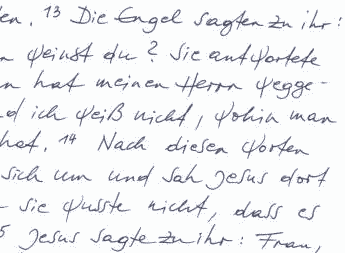 en. 13 Die Engel sagten zu ihr:
n weinst du? Sie antwortete
n hat meinen Herrn wegge-
d ich weiß nicht, wohin man
hat. 14 Nach diesen Worten
sich um und sah Jesus dort
sie wusste nicht, dass es
5 Jesus sagte zu ihr: Frau,